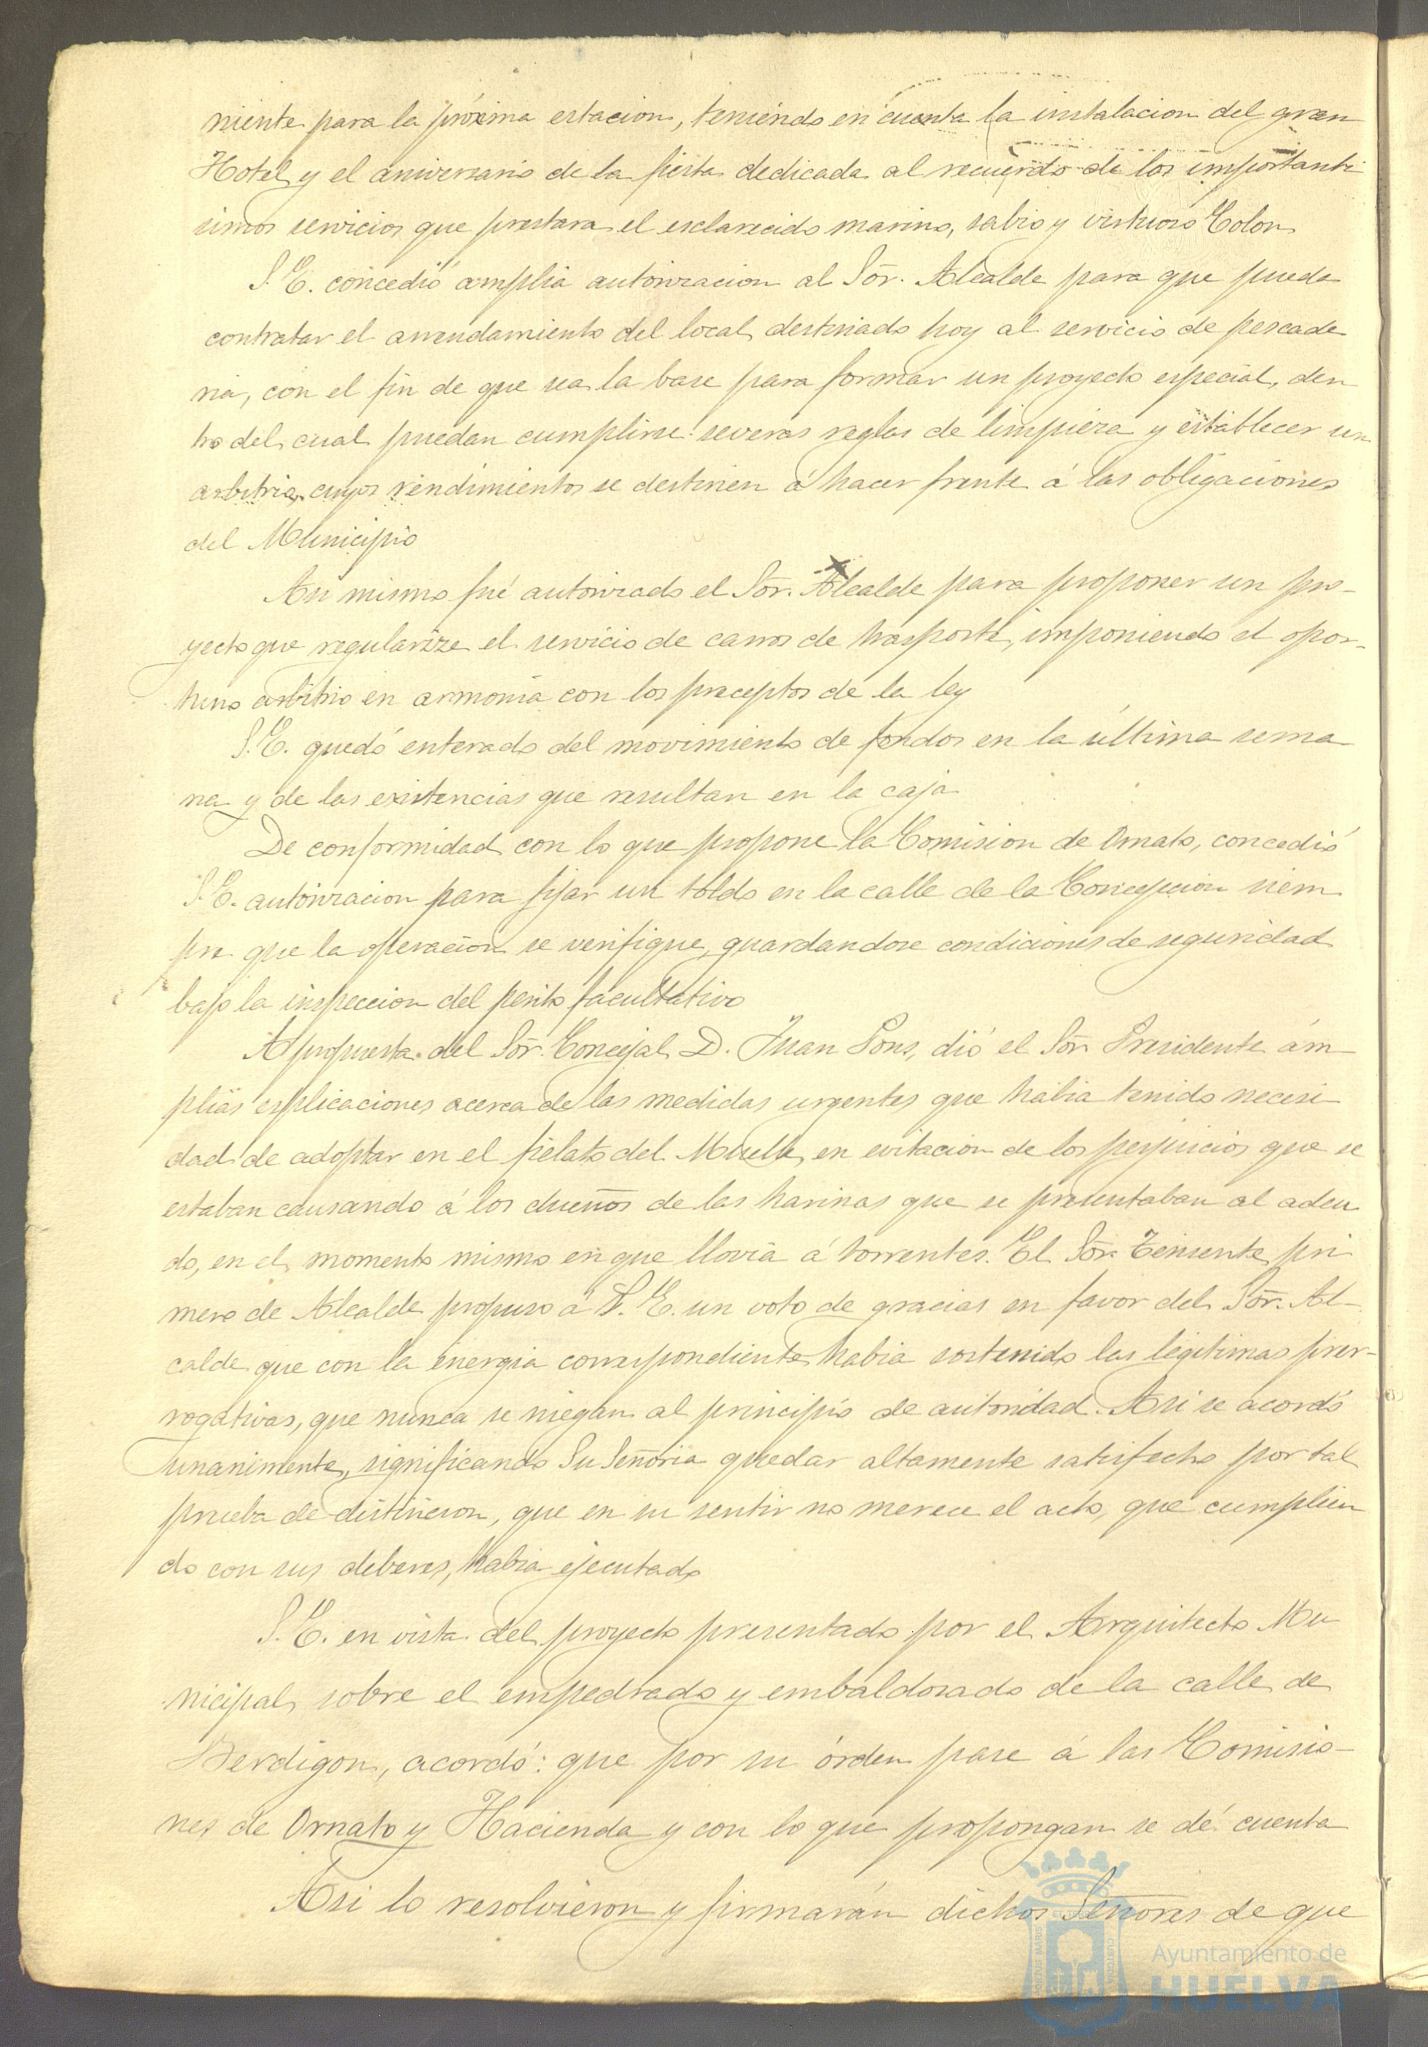 niente para la próxima estacion, teniendo en cuenta la instalacion del gran
Hotel y el aniversario de la fiesta dedicada al recuerdo de los importanti
simos servicios que prestara el esclarecido marino, sabio y virtuoso Colon
S. E. concedió amplia autorizacion al Sór. Alcalde para que pueda
contratar el arrendamiento del local destinado hoy al servicio de pescade
ria, con el fin de que sea la base para formar un proyecto especial, den
tro del cual puedan cumplirse severas reglas de limpieza y establecer un
arbitrio cuyos rendimientos se destinen á hacer frente á las obligaciones
del Municipio
Asi mismo fué autorizado el Sór. Alcalde para proponer un pro-
yecto que regularize el servicio de carros de trasporte, imponiendo el opor-
tuno arbitrio en armonia con los preceptos de la ley
S. E. quedó enterado del movimiento de fondos en la última sema
na y de las existencias que resultan en la caja
De conformidad con lo que propone la Comision de Ornato, concedió
S. E. autorizacion para fijar un toldo en la calle de la Concepcion siem
pre que la operacion se verifique, guardandose condiciones de seguridad
bajo la inspeccion del perito facultativo
A propuesta del Sór. Concejal D. Juan Pons, dió el Sór Presidente ám-
plias esplicaciones acerca de las medidas urgentes que habia tenido necesi
dad de adoptar en el fielato del Muelle, en evitacion de los perjuicios que se
estaban causando á los dueños de las harinas que se presentaban al adeu
do, en el momento mismo en que llovia á torrentes. El Sór Teniente pri
mero de Alcalde propuso á S. E. un voto de gracias en favor del Sór. Al-
calde que con la energia correspondiente habia sostenido las legitimas prer-
rogativas, que nunca se niegan al principio de autoridad. Asi se acordó
unanimente, significando Su Señoria quedar altamente satisfecho por tal
prueba de distincion, que en su sentir no merece el acto, que cumplien
do con sus deberes, habia ejecutado
S. E. en vista del proyecto presentado por el Arquitecto Mu
nicipal, sobre el empedrado y embaldosado de la calle de
Berdigon, acordó: que por su órden pase á las Comisio-
nes de Ornato y Hacienda y con lo que propongan se dé cuenta
Asi lo resolvieron y firmarán dichos Señores de que
Ayuntamiento de
HUELVA